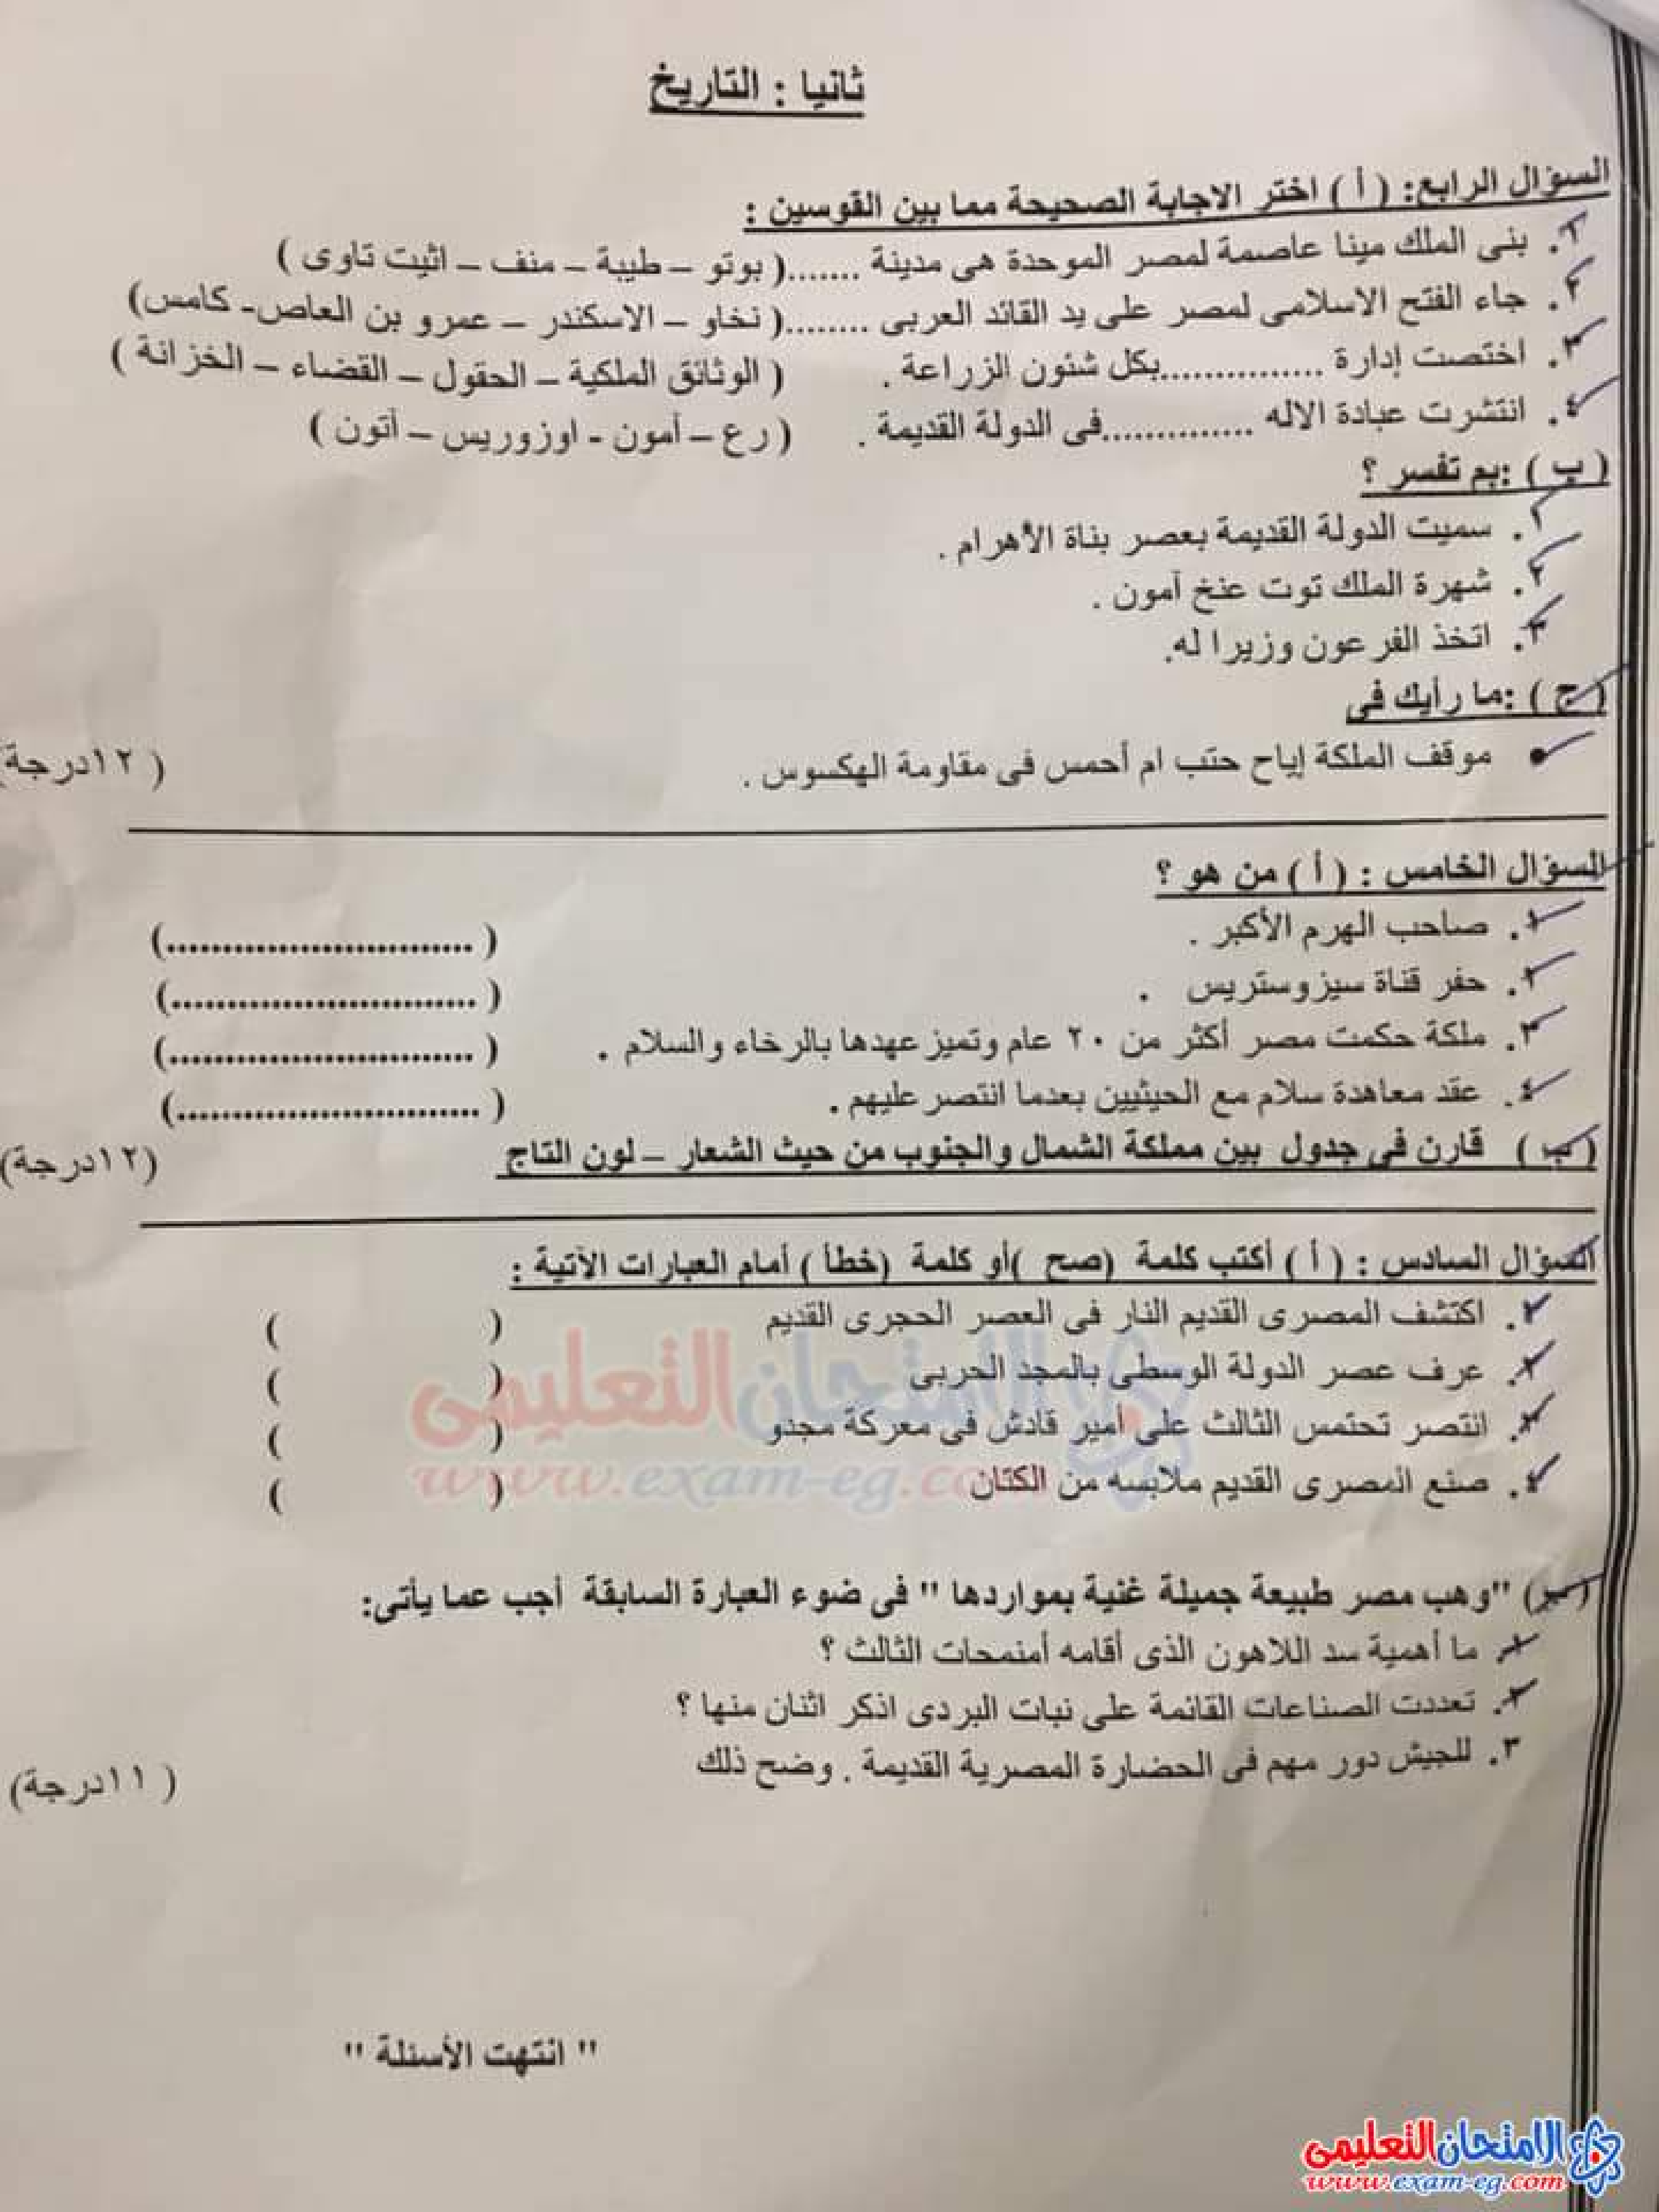 ثانيا : التاريخ
السؤال الرابع: ( أ ) اختر الاجابة الصحيحة مما بين القوسين :
١. بنى الملك مينا عاصمة لمصر الموحدة هى مدينة .......( بوتو – طيبة – منف – اثيت تاوى )
٢. جاء الفتح الاسلامى لمصر على يد القائد العربى ........( نخاو – الاسكندر – عمرو بن العاص- كامس)
٣. اختصت إدارة ................بكل شئون الزراعة . ( الوثائق الملكية – الحقول – القضاء – الخزانة )
٤. انتشرت عبادة الاله ..............فى الدولة القديمة . ( رع – أمون - اوزوريس – أتون )
( ب ) :بم تفسر ؟
١. سميت الدولة القديمة بعصر بناة الأهرام .
٢. شهرة الملك توت عنخ أمون .
٣. اتخذ الفرعون وزيرا له.
( ج ) :ما رأيك فى
• موقف الملكة إياح حتب ام أحمس فى مقاومة الهكسوس .
( ١٢درجة)
السؤال الخامس : ( أ ) من هو ؟
١. صاحب الهرم الأكبر . ( ............................)
٢. حفر قناة سيزوستريس . ( ............................)
٣. ملكة حكمت مصر أكثر من ٢٠ عام وتميز عهدها بالرخاء والسلام . ( ............................)
٤. عقد معاهدة سلام مع الحيثيين بعدما انتصر عليهم . ( ............................)
( ب ) قارن فى جدول بين مملكة الشمال والجنوب من حيث الشعار – لون التاج (١٢درجة)
السؤال السادس : ( أ ) أكتب كلمة (صح )أو كلمة (خطأ ) أمام العبارات الآتية :
١. اكتشف المصرى القديم النار فى العصر الحجرى القديم ( )
٢. عرف عصر الدولة الوسطى بالمجد الحربى ( )
٣. انتصر تحتمس الثالث على أمير قادش فى معركة مجدو ( )
٤. صنع المصرى القديم ملابسه من الكتان ( )
الامتحان التعليمى
www.exam-eg.com
(ب) "وهب مصر طبيعة جميلة غنية بمواردها " فى ضوء العبارة السابقة أجب عما يأتى:
١. ما أهمية سد اللاهون الذى أقامه أمنمحات الثالث ؟
٢. تعددت الصناعات القائمة على نبات البردى اذكر اثنان منها ؟
٣. للجيش دور مهم فى الحضارة المصرية القديمة . وضح ذلك
( ١١درجة)
" انتهت الأسئلة "
الامتحان التعليمى
www.exam-eg.com